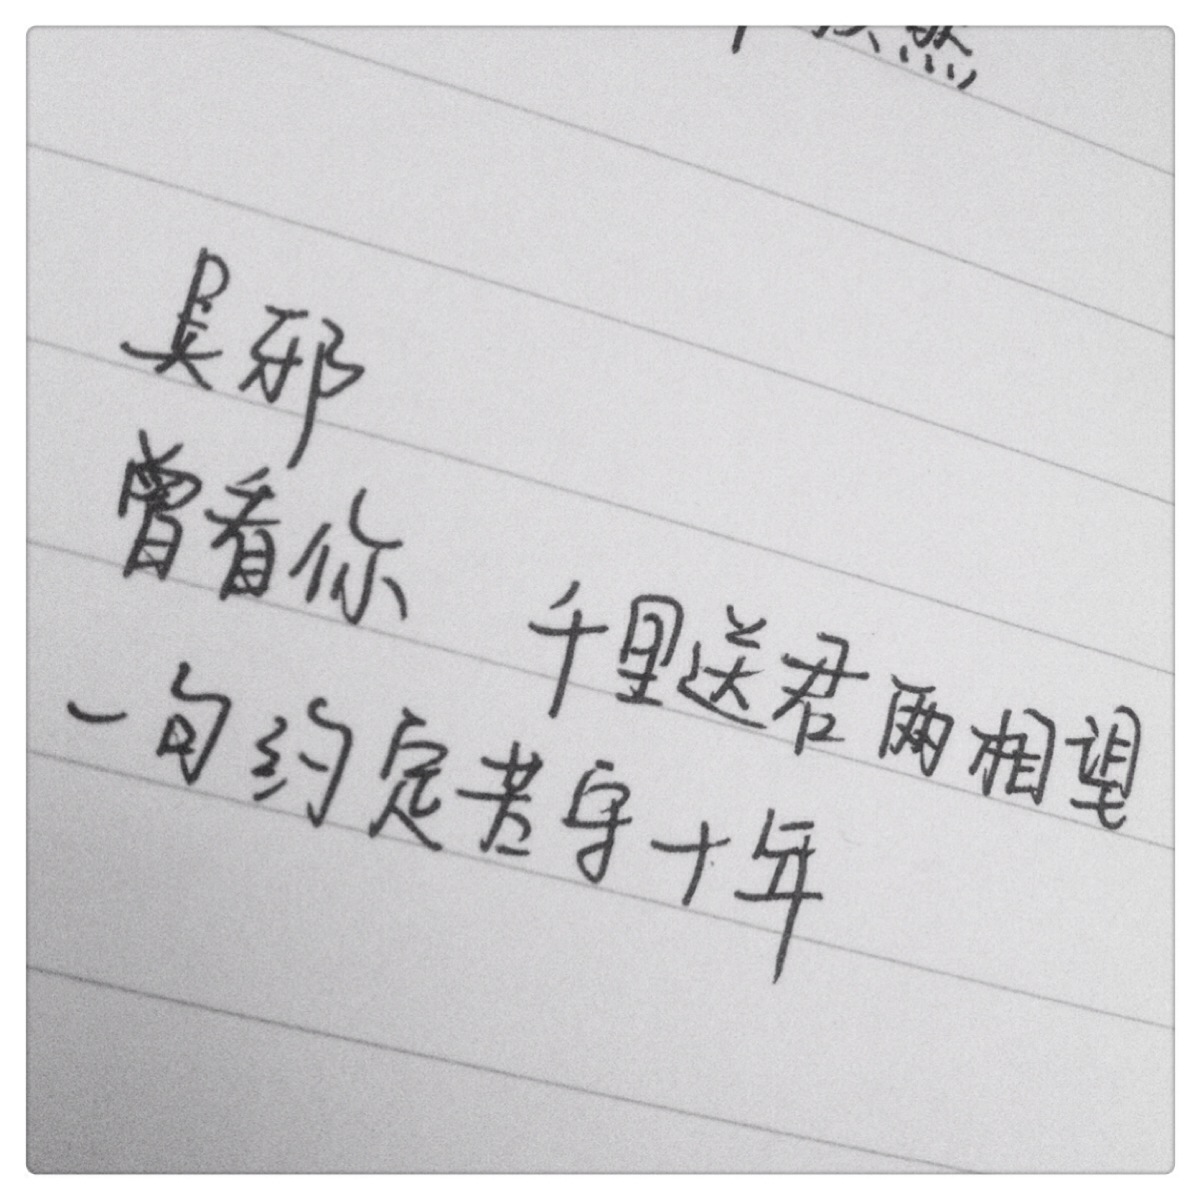 然
吴邪
曾看你 千里送君两相望
一句约定苦守十年